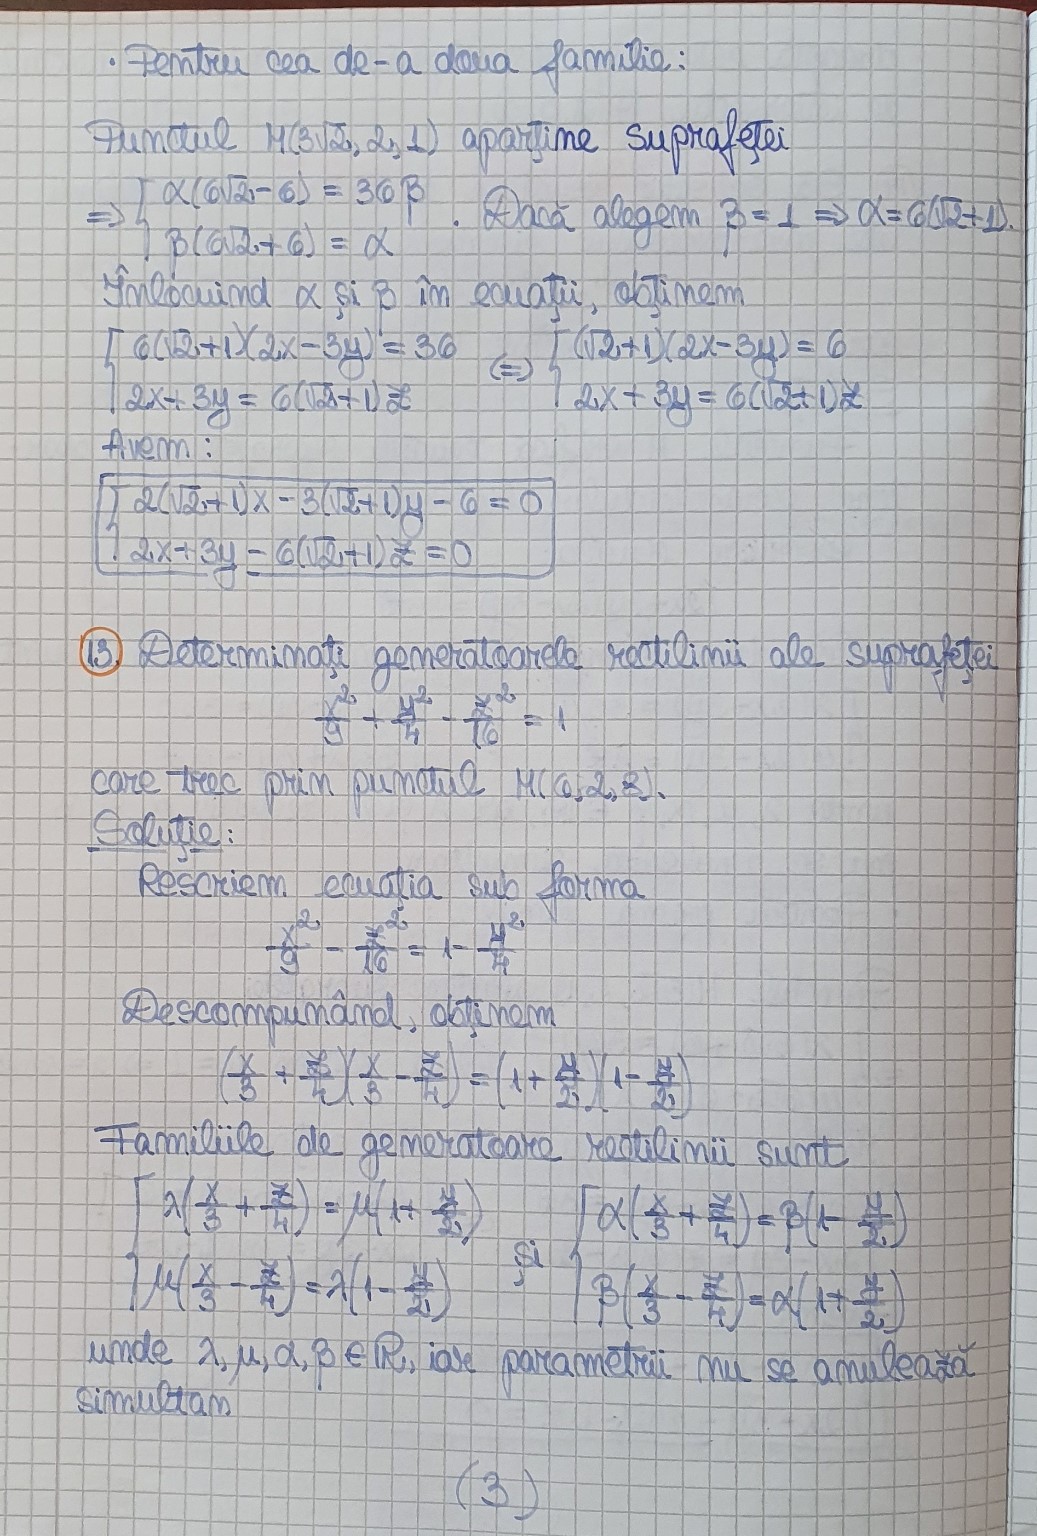 · Pentru cea de-a doua familie:
Punctul M(3√2, 2, 1) aparține suprafeței
=> { α(6√2-6) = 36β
β(6√2+6) = α . Dacă alegem β = 1 => α = 6(√2+1).
Înlocuind α și β în ecuații, obținem
{ 6(√2+1)(2x-3y) = 36 (=) { (√2+1)(2x-3y) = 6
2x+3y = 6(√2+1)z 2x+3y = 6(√2+1)z
Avem:
{ 2(√2+1)x - 3(√2+1)y - 6 = 0
2x+3y - 6(√2+1)z = 0
13. Determinați generatoarele rectilinii ale suprafeței
x²/9 + y²/4 - z²/16 = 1
care trec prin punctul M(6, 2, 8).
Soluție:
Rescriem ecuația sub forma
x²/9 - z²/16 = 1 - y²/4
Descompunând, obținem
(x/3 + z/4)(x/3 - z/4) = (1 + y/2)(1 - y/2)
Familiile de generatoare rectilinii sunt
{ λ(x/3 + z/4) = μ(1 + y/2) și { α(x/3 + z/4) = β(1 - y/2)
μ(x/3 - z/4) = λ(1 - y/2) β(x/3 - z/4) = α(1 + y/2)
unde λ, μ, α, β ∈ ℝ, iar parametrii nu se anulează
simultan
(3)